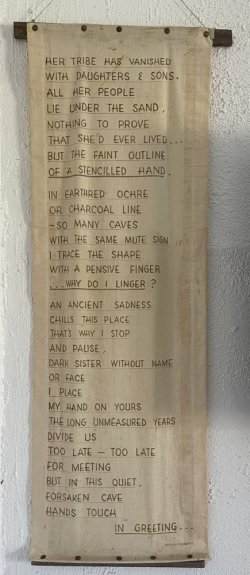 HER TRIBE HAS VANISHED
WITH DAUGHTERS & SONS.
ALL HER PEOPLE
LIE UNDER THE SAND,
NOTHING TO PROVE
THAT SHE'D EVER LIVED...
BUT THE FAINT OUTLINE
OF A STENCILLED HAND.
IN EARTHRED OCHRE
OR CHARCOAL LINE
- SO MANY CAVES
WITH THE SAME MUTE SIGN
I TRACE THE SHAPE
WITH A PENSIVE FINGER
...WHY DO I LINGER?
AN ANCIENT SADNESS
CHILLS THIS PLACE
THATS WHY I STOP
AND PAUSE,
DARK SISTER WITHOUT NAME
OR FACE
I PLACE
MY HAND ON YOURS
THE LONG UNMEASURED YEARS
DIVIDE US
TOO LATE - TOO LATE
FOR MEETING
BUT IN THIS QUIET,
FORSAKEN CAVE
HANDS TOUCH
IN GREETING...